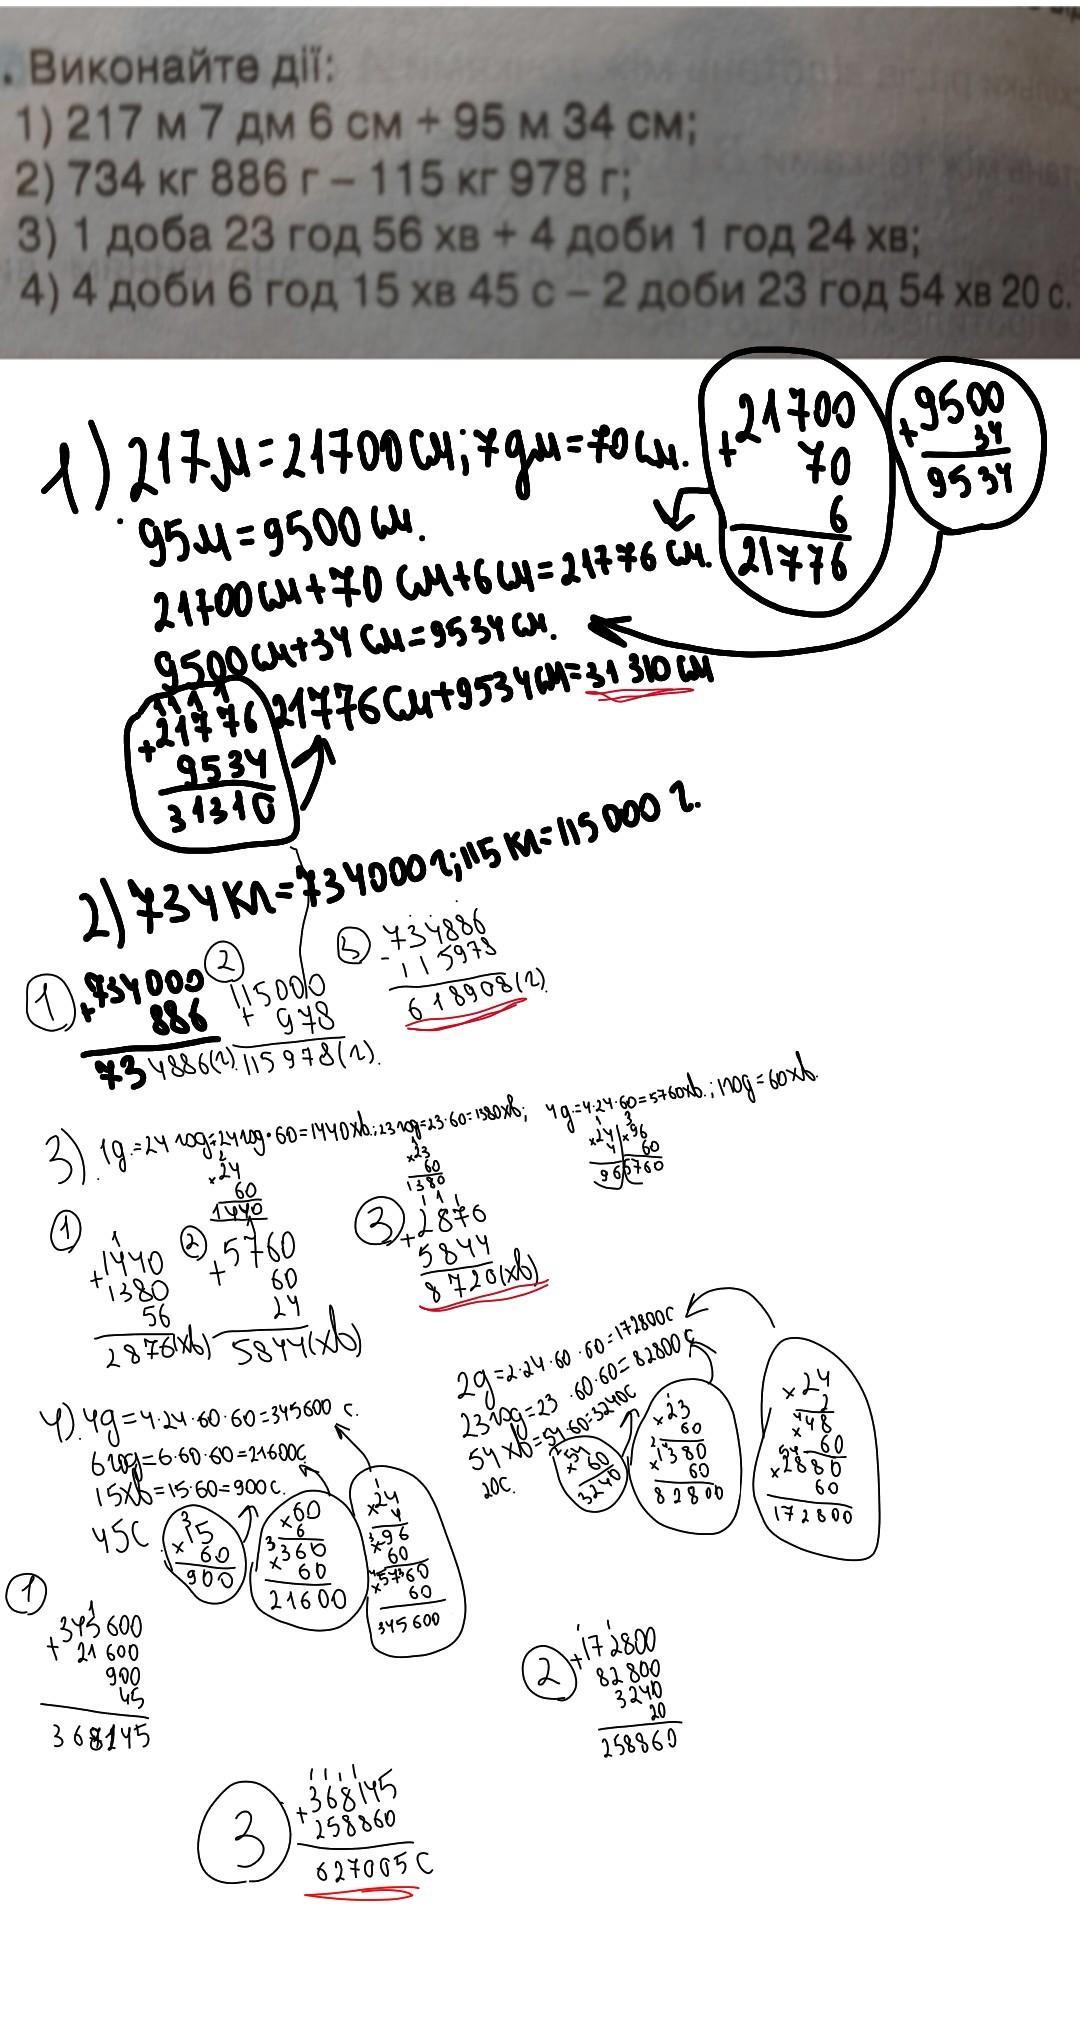 . Виконайте дії:
1) 217 м 7 дм 6 см + 95 м 34 см;
2) 734 кг 886 г – 115 кг 978 г;
3) 1 доба 23 год 56 хв + 4 доби 1 год 24 хв;
4) 4 доби 6 год 15 хв 45 с – 2 доби 23 год 54 хв 20 с.
1) 217м=21700см; 7дм=70см.
95м=9500см.
21700см+70см+6см=21776см.
9500см+34см=9534см.
21776см+9534см=31310см
+21700
70
6
21776
+9500
34
9534
1111
+21776
9534
31310
2) 734кг=734000г; 115кг=115000г.
1
+734000
886
734886(г).
2
115000
+ 978
115978(г).
3
734886
- 115978
618908(г).
3). 1д=24год=24год·60=1440хв.; 23год=23·60=1380хв; 4д=4·24·60=5760хв.; 1год=60хв.
×24
60
1440
×23
60
1380
×24
4
96
×96
60
5760
1
+1440
1380
56
2876(хв)
2
+5760
60
24
5844(хв)
3
+2876
5844
8720(хв)
4). 4д=4·24·60·60=345600 с.
6год=6·60·60=21600с
15хв=15·60=900с.
45с
×15
60
900
×60
6
×360
60
21600
×24
4
×96
60
×5760
60
345600
2д=2·24·60·60=172800с
23год=23·60·60=82800с
54хв=54·60=3240с
20с.
×54
60
3240
×23
60
×1380
60
82800
×24
2
×48
60
×2880
60
172800
1
+345600
21600
900
45
368145
2
+172800
82800
3240
20
258860
3
1111
+368145
258860
627005с